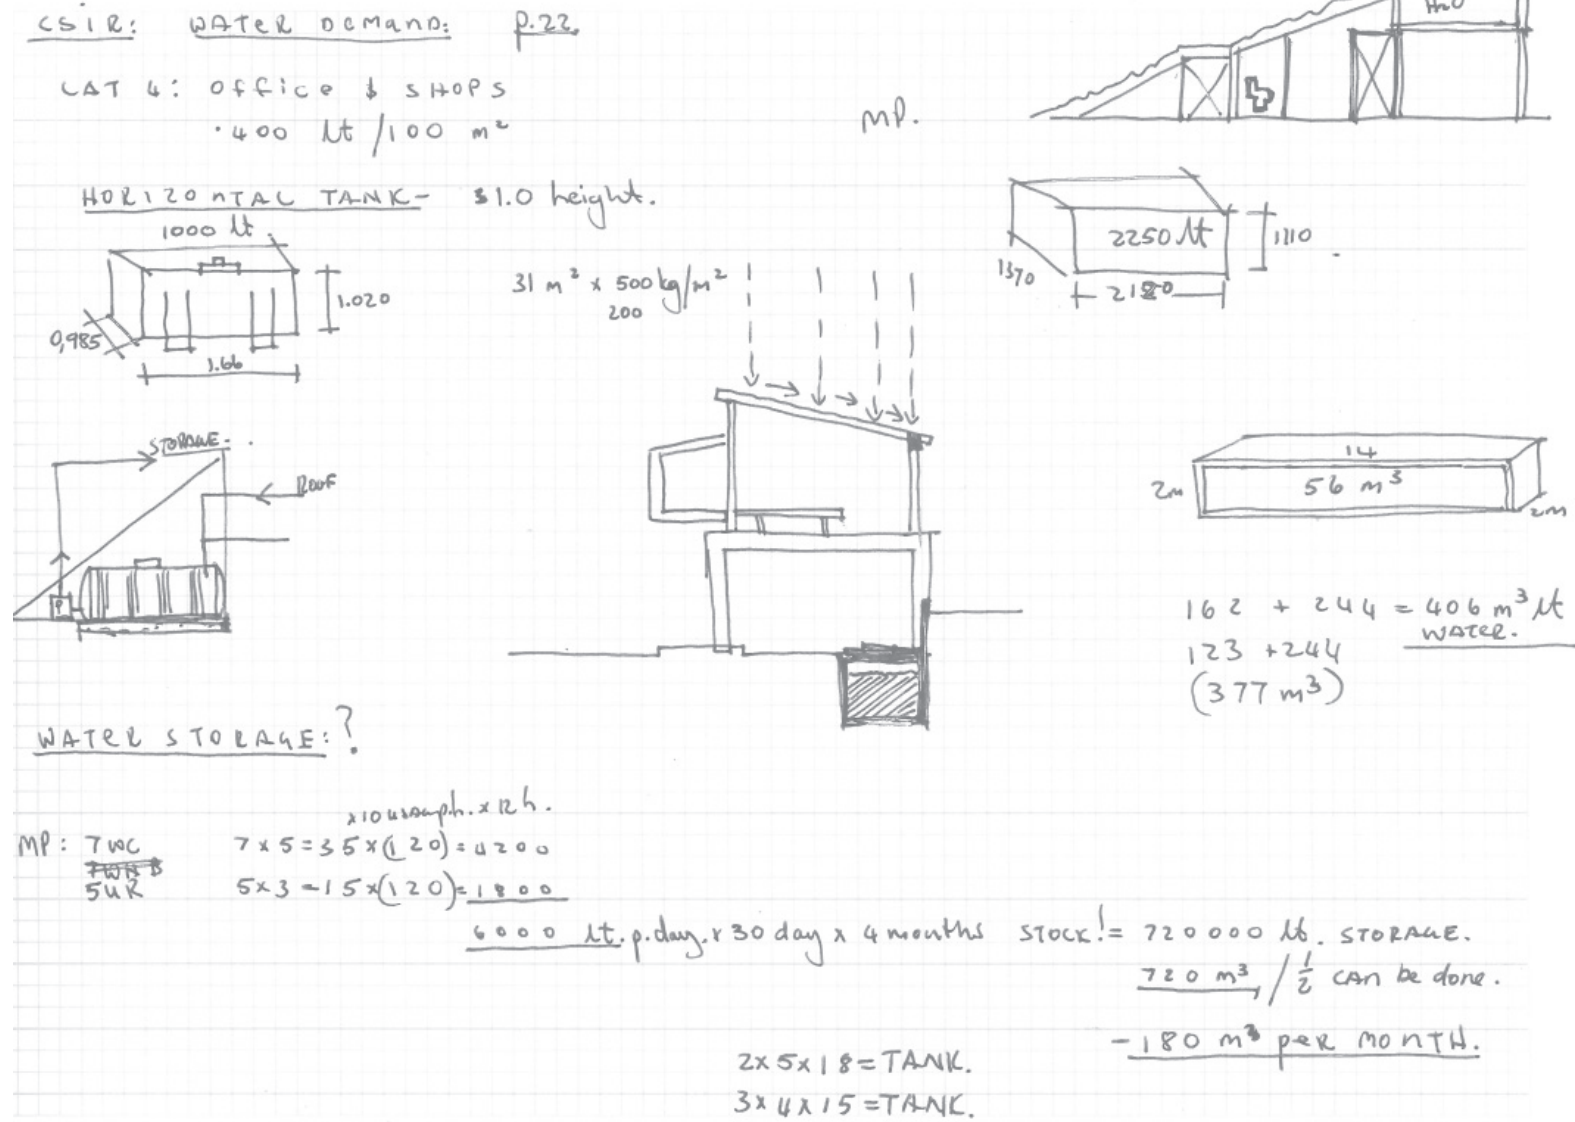 CSIR: WATER DEMAND: p.22.
H2O
CAT 4: OFFICE & SHOPS
·400 lt /100 m²
MP.
HORIZONTAL TANK- 1.0 height.
1000 lt
1.020
0,985
1.66
31 m² x 500 kg/m²
200
2250 lt
1110
1370
2180
STORAGE.
ROOF
P
14
56 m³
2m
2m
162 + 244 = 406 m³ lt
WATER.
123 +244
(377 m³)
WATER STORAGE:?
x10 p.h. x 12 h.
MP: 7 WC 7 x 5 = 35 x (120) = 4200
5UR 5x3 = 15 x (120) = 1800
6000 lt. p. day. x 30 day x 4 months STOCK! = 720 000 lt. STORAGE.
720 m³ / 1/2 can be done.
- 180 m³ per month.
2x5x18=TANK.
3x4x15=TANK.